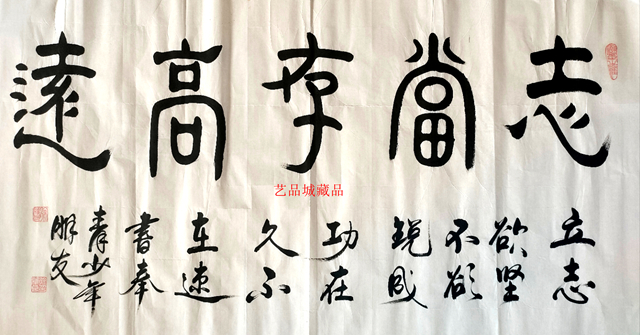 志當存高遠
立志
欲坚
不欲
锐成
功在
久不
在速
書奉
青少年
朋友
艺品城藏品